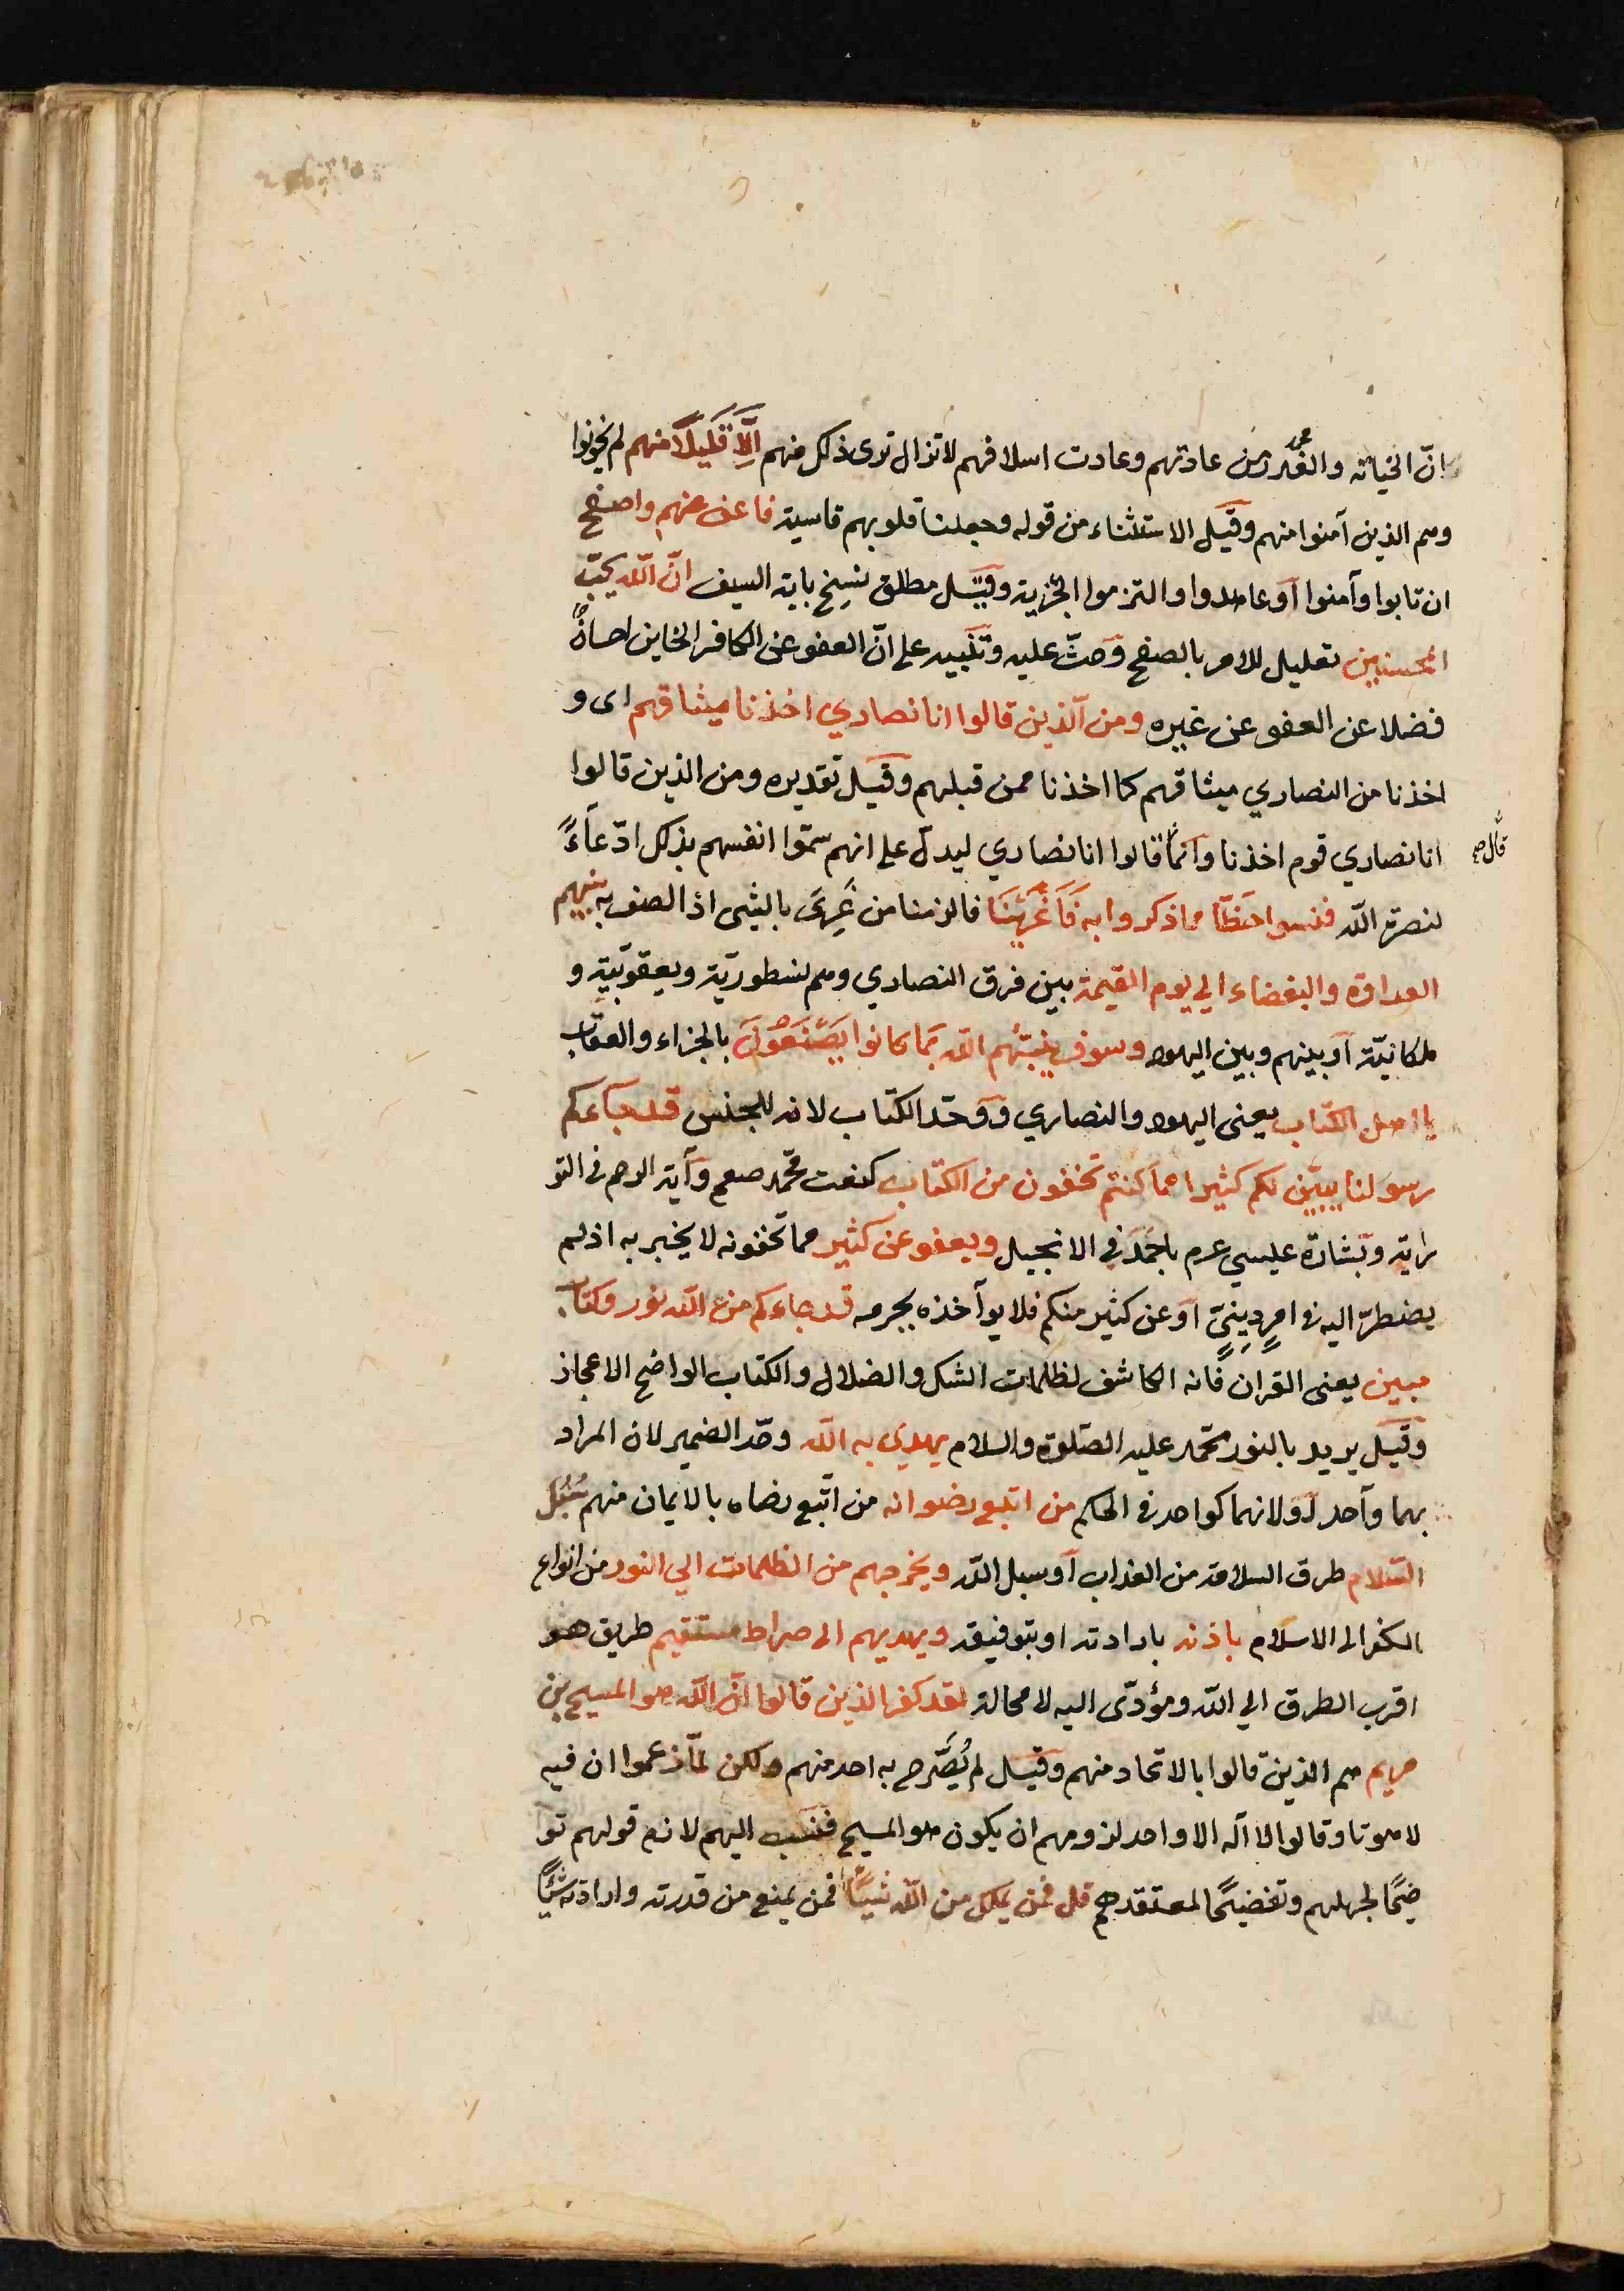 انّ الخيانه والغدر من عادتهم وعادت اسلافهم لا تزال ترى ذلك منهم اِلَّا قَلِيلًا منهم لم يخونوا
وهم الذين آمنوا منهم وقيل الاستثناء من قوله وجعلنا قلوبهم قاسية فاعف عنهم واصفح
ان تابوا وآمنوا أو عاهدوا والتزموا الجزية وقيل مطلق نسخ باية السيف انّ الله يحبّ
المحسنين تعليل للامر بالصفح وحثّ عليه وتنبيه على انّ العفو عن الكافر الخاين احسان
فضلا عن العفو عن غيره ومن الّذين قالوا انا نصاري اخذنا ميثاقهم اى و
اخذنا من النصاري ميثاقهم كما اخذنا ممن قبلهم وقيل تقديره ومن الذين قالوا
انا نصاري قوم اخذنا وانما قالوا انا نصاري ليدل على انهم سمّوا انفسهم بذلك ادّعاءً
قال صح
لنصرة الله فنسوا حَظّا مما ذكروا به فَاَغْرَيْنَا فالزمنا من غَرِىَ بالشى اذا لصق به بينهم
العداوة والبغضاء الي يوم القيمة بين فرق النصاري وهم نسطوريّة ويعقوبيّة و
ملكانيّة أو بينهم وبين اليهود وسوف ينبئهم الله بَما كانوا يَصْنَعُونَ بالجزاء والعقاب
يا اهل الكتاب يعنى اليهود والنصاري ووحّد الكتاب لانه للجنس قد جاءكم
رسولنا يبيّن لكم كثيرا مما كنتم تخفون من الكتاب كنعت محمّد صعم وآية الرجم فى التو
راية وبشارة عيسي عم باحمد في الانجيل ويعفو عن كثير مما تخفونه لا يخبر به اذ لم
يضطرّ اليه فى امرٍ دينيّ أو عن كثير منكم فلا يوآخذه بجرمه قد جاءكم من الله نور وكتاب
مبين يعنى القران فانه الكاشف لظلمات الشك والضلال والكتاب الواضح الاعجاز
وقيل يريد بالنور محمّد عليه الصّلوة والسلام يهدي به الله وحّد الضمير لان المراد
بهما وآحد أو لانهما كواحد فى الحكم من اتبع رضوانه من اتّبع رضاه بالايمان منهم سُبُل
السّلام طرق السلامة من العذاب أو سبل الله ويخرجهم من الظلمات الي النور من انواع
الكفر الى الاسلام باذنه بارادته او بتوفيقه ويهديهم الى صراط مستقيم طريق هو
اقرب الطرق الي الله ومؤدّى اليه لا محالة لقد كفر الذين قالوا انّ الله هو المسيح بن
مريم هم الذين قالوا بالاتحاد منهم وقيل لم يُصَرّح به احد منهم ولكن لمّا زعموا ان فيه
لاهوتا وقالوا لا اله الا واحد لزومهم ان يكون هو المسيح فنسب اليهم لازم قولهم تو
ضيحًا لجهلهم وتفضيحًا لمعتقدهم قل فمن يملك من الله شيئًا فمن يمنع من قدرته وارادته شيئًا